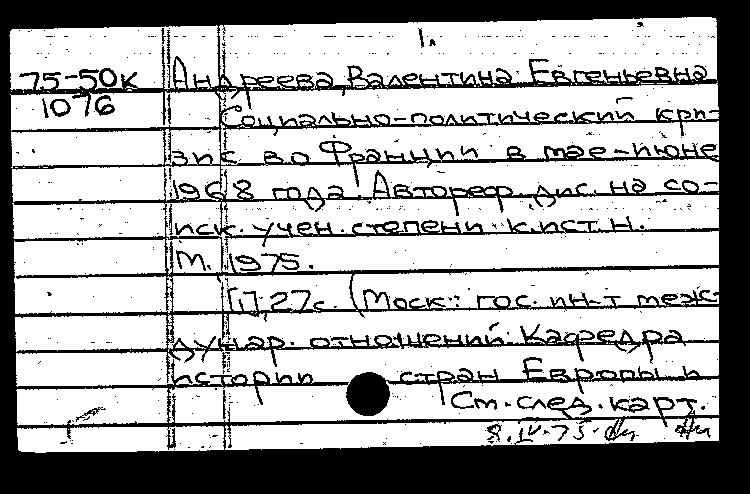 1.
75-50к Андреева, Валентина Евгеньевна
1076
Социально-политический кри-
зис во Франции в мае-июне
1968 года. Автореф. дис. на со-
иск. учен. степени к. ист. н.
М. 1975.
[1], 27 с. (Моск. гос. ин-т меж-
дунар. отношений. Кафедра
истории стран Европы и
См. след. карт.
8.IV.75.